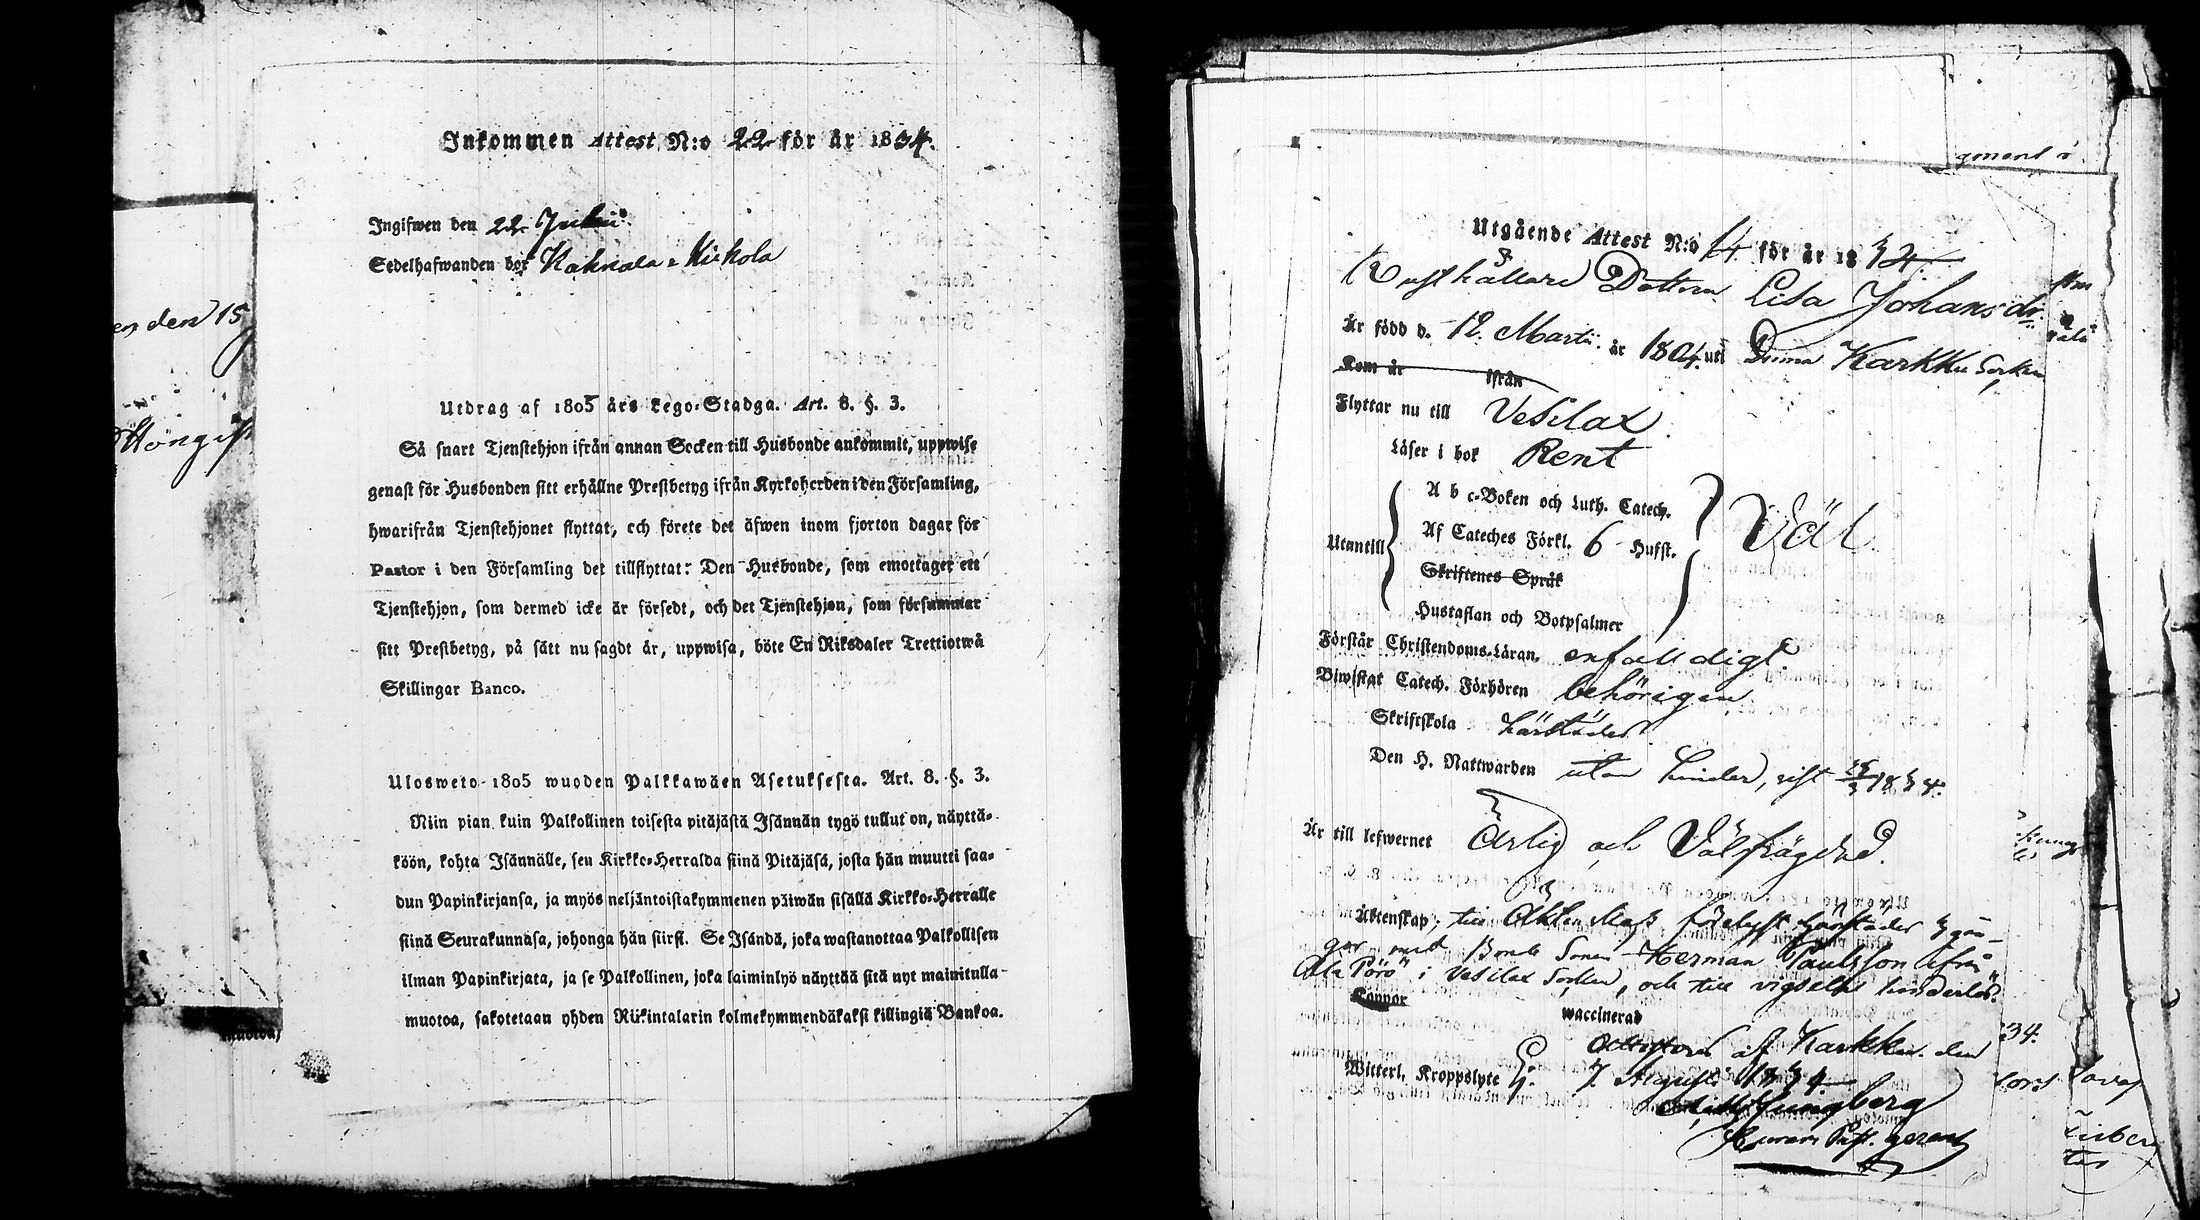 Inkommen Attest N:o 22 för år 1834.
Ingifwen den 22 Julii
Sedelhafwanden bor Kahnala Mickola
en den 15
Utdrag af 1805 års Lego-Stadga. Art. 8. §. 3.
Så snart Tjenstehjon ifrån annan Socken till Husbonde ankommit, uppwise
genast för Husbonden sitt erhållne Prestbetyg ifrån Kyrkoherden i den Församling,
hwarifrån Tjenstehjonet flyttat, och förete det äfwen inom fjorton dagar för
Pastor i den Församling det tillflyttat: Den Husbonde, som emottager ett
Tjenstehjon, som dermed icke är försedt, och det Tjenstehjon, som försummar
sitt Prestbetyg, på sätt nu sagdt är, uppwisa, böte En Riksdaler Trettiotwå
Skillingar Banco.
Ulosweto 1805 wuoden Palkkawäen Asetuksesta. Art. 8. §. 3.
Niin pian kuin Palkollinen toisesta pitäjästä Isännän tygö tullut on, näyttä-
köön, kohta Isännälle, sen Kirkko-Herralda siinä Pitäjäsä, josta hän muutti saa-
dun Papinkirjansa, ja myös neljäntoistakymmenen päiwän sisällä Kirkko-Herralle
siinä Seurakunnasa, johonga hän siirsi. Se Isändä, joka wastanottaa Palkollisen
ilman Papinkirjata, ja se Palkollinen, joka laiminlyö näyttää sitä nyt mainitulla
muotoa, sakotetaan yhden Riikintalarin kolmekymmendäkaksi killingiä Bankoa.
Utgående Attest N:o 14 för år 1834
Rusthållare Dottern Lisa Johansdr.
Är född d. 12. Martii år 1804. uti Karkku Socken
Kom år ifrån
Flyttar nu till Vesilax.
Läser i bok Rent
A b c-Boken och Luth. Catech.
Utantill Af Cateches Förkl. 6 Hufst. Väl
Skriftenes Språk
Hustaflan och Botpsalmer
Förstår Christendoms-Läran. enfalldigt.
Biwistat Catech. Förhören behörigen
Skriftskola härstädes
Den H. Nattwarden utan hinder, sist 1834.
Är till lefwernet Ärlig och Välfrägdad.
Äktenskap; till Äktenskap förelyst härstädes 3 gån-
ger med Bonde Sonen Herman Paulsson ifrån
Ala Pörö i Vesilax Socken, och till vigseln hinderlös.
Koppor waccinerad
af Karkku den
Witterl. Kroppslyte Ej. 7 Augusti 1834
Ljungberg
34.